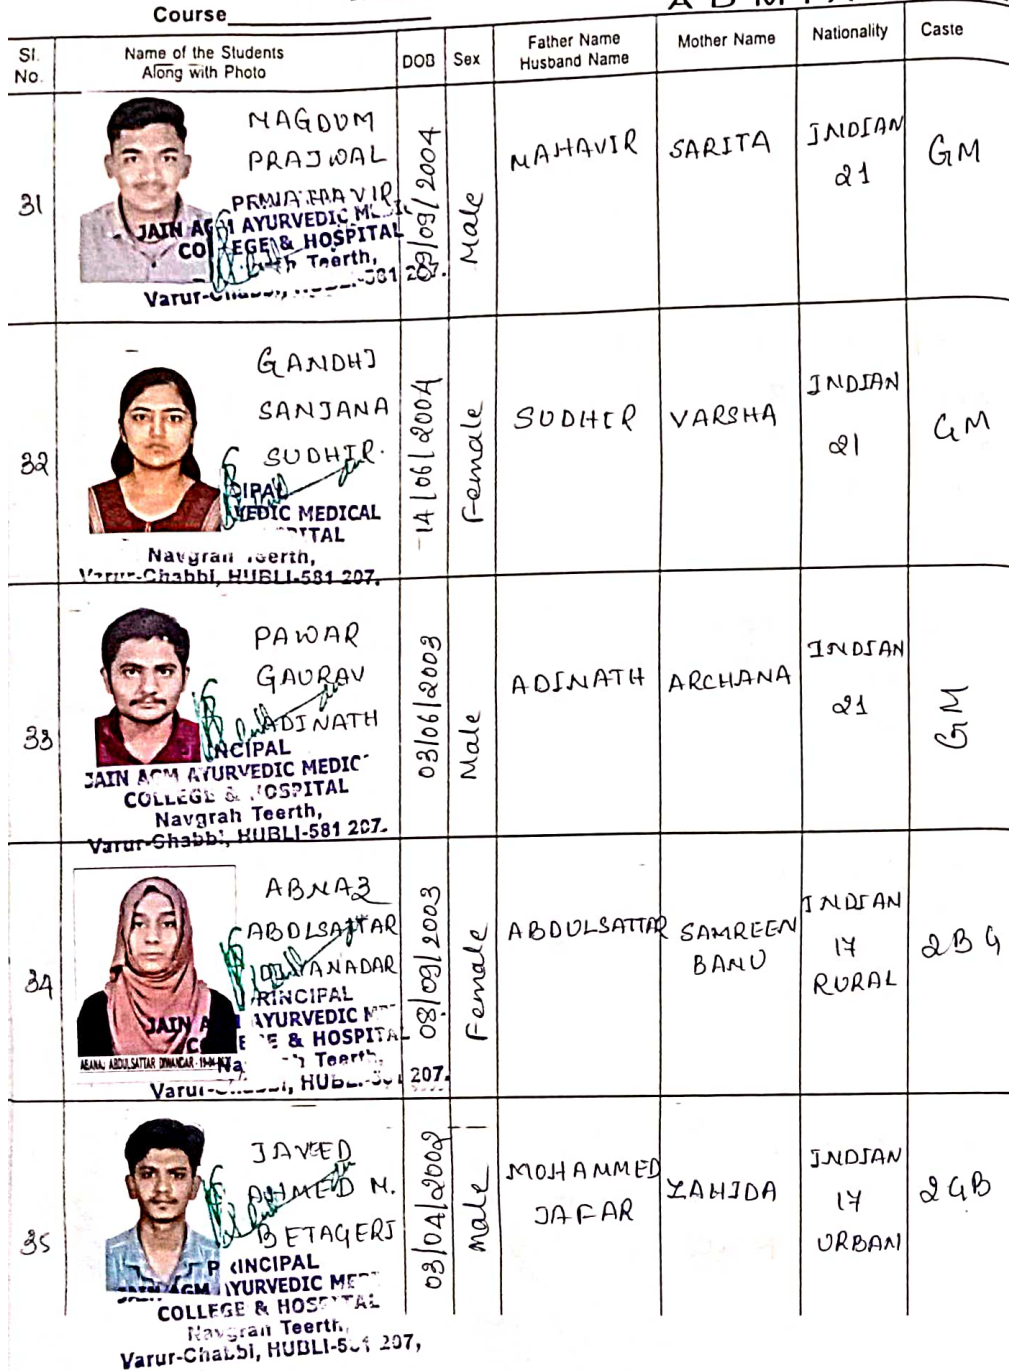 Course
Sl. No.
Name of the Students Along with Photo
DOB
Sex
Father Name Husband Name
Mother Name
Nationality
Caste
31
MAGDUM
PRAJWAL
JAIN AGM AYURVEDIC
COLLEGE & HOSPITAL
Teerth,
Varur-Chabbi,
09/09/2004
Male
MAHAVIR
SARITA
INDIAN
21
GM
32
GANDHI
SANJANA
SUDHIR.
MEDICAL
Navgrah Teerth,
Varur-Chabbi, HUBLI-581 207.
14/06/2004
Female
SUDHIR
VARSHA
INDIAN
21
GM
33
PAWAR
GAURAV
ADINATH
JAIN AGM AYURVEDIC
COLLEGE & HOSPITAL
Navgrah Teerth,
Varur-Chabbi, HUBLI-581 207.
03/06/2003
Male
ADINATH
ARCHANA
INDIAN
21
GM
34
ABNAZ
ABDULSATTAR
PRINCIPAL
AYURVEDIC
& HOSPITAL
Teerth,
207.
08/09/2003
Female
ABDULSATTAR
SAMREEN
BANU
INDIAN
17
RURAL
2B G
35
JAVEED
AHMED M.
BETAGERI
PRINCIPAL
AYURVEDIC
COLLEGE & HOSPITAL
Navgrah Teerth,
Varur-Chabbi, HUBLI-581 207,
03/04/2002
male
MOHAMMED
JAFAR
ZAHIDA
INDIAN
17
URBAN
2GB